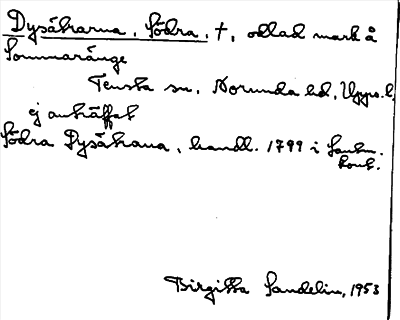 Dysåkarna, Södra, †, odlad mark å
Sommaränge
Tensta sn, Norunda hd, Upps. l.
ej anträffat
Södra Dysåkrana, handl. 1799 i Lantm.
kont.
Birgitta Sandelin, 1953